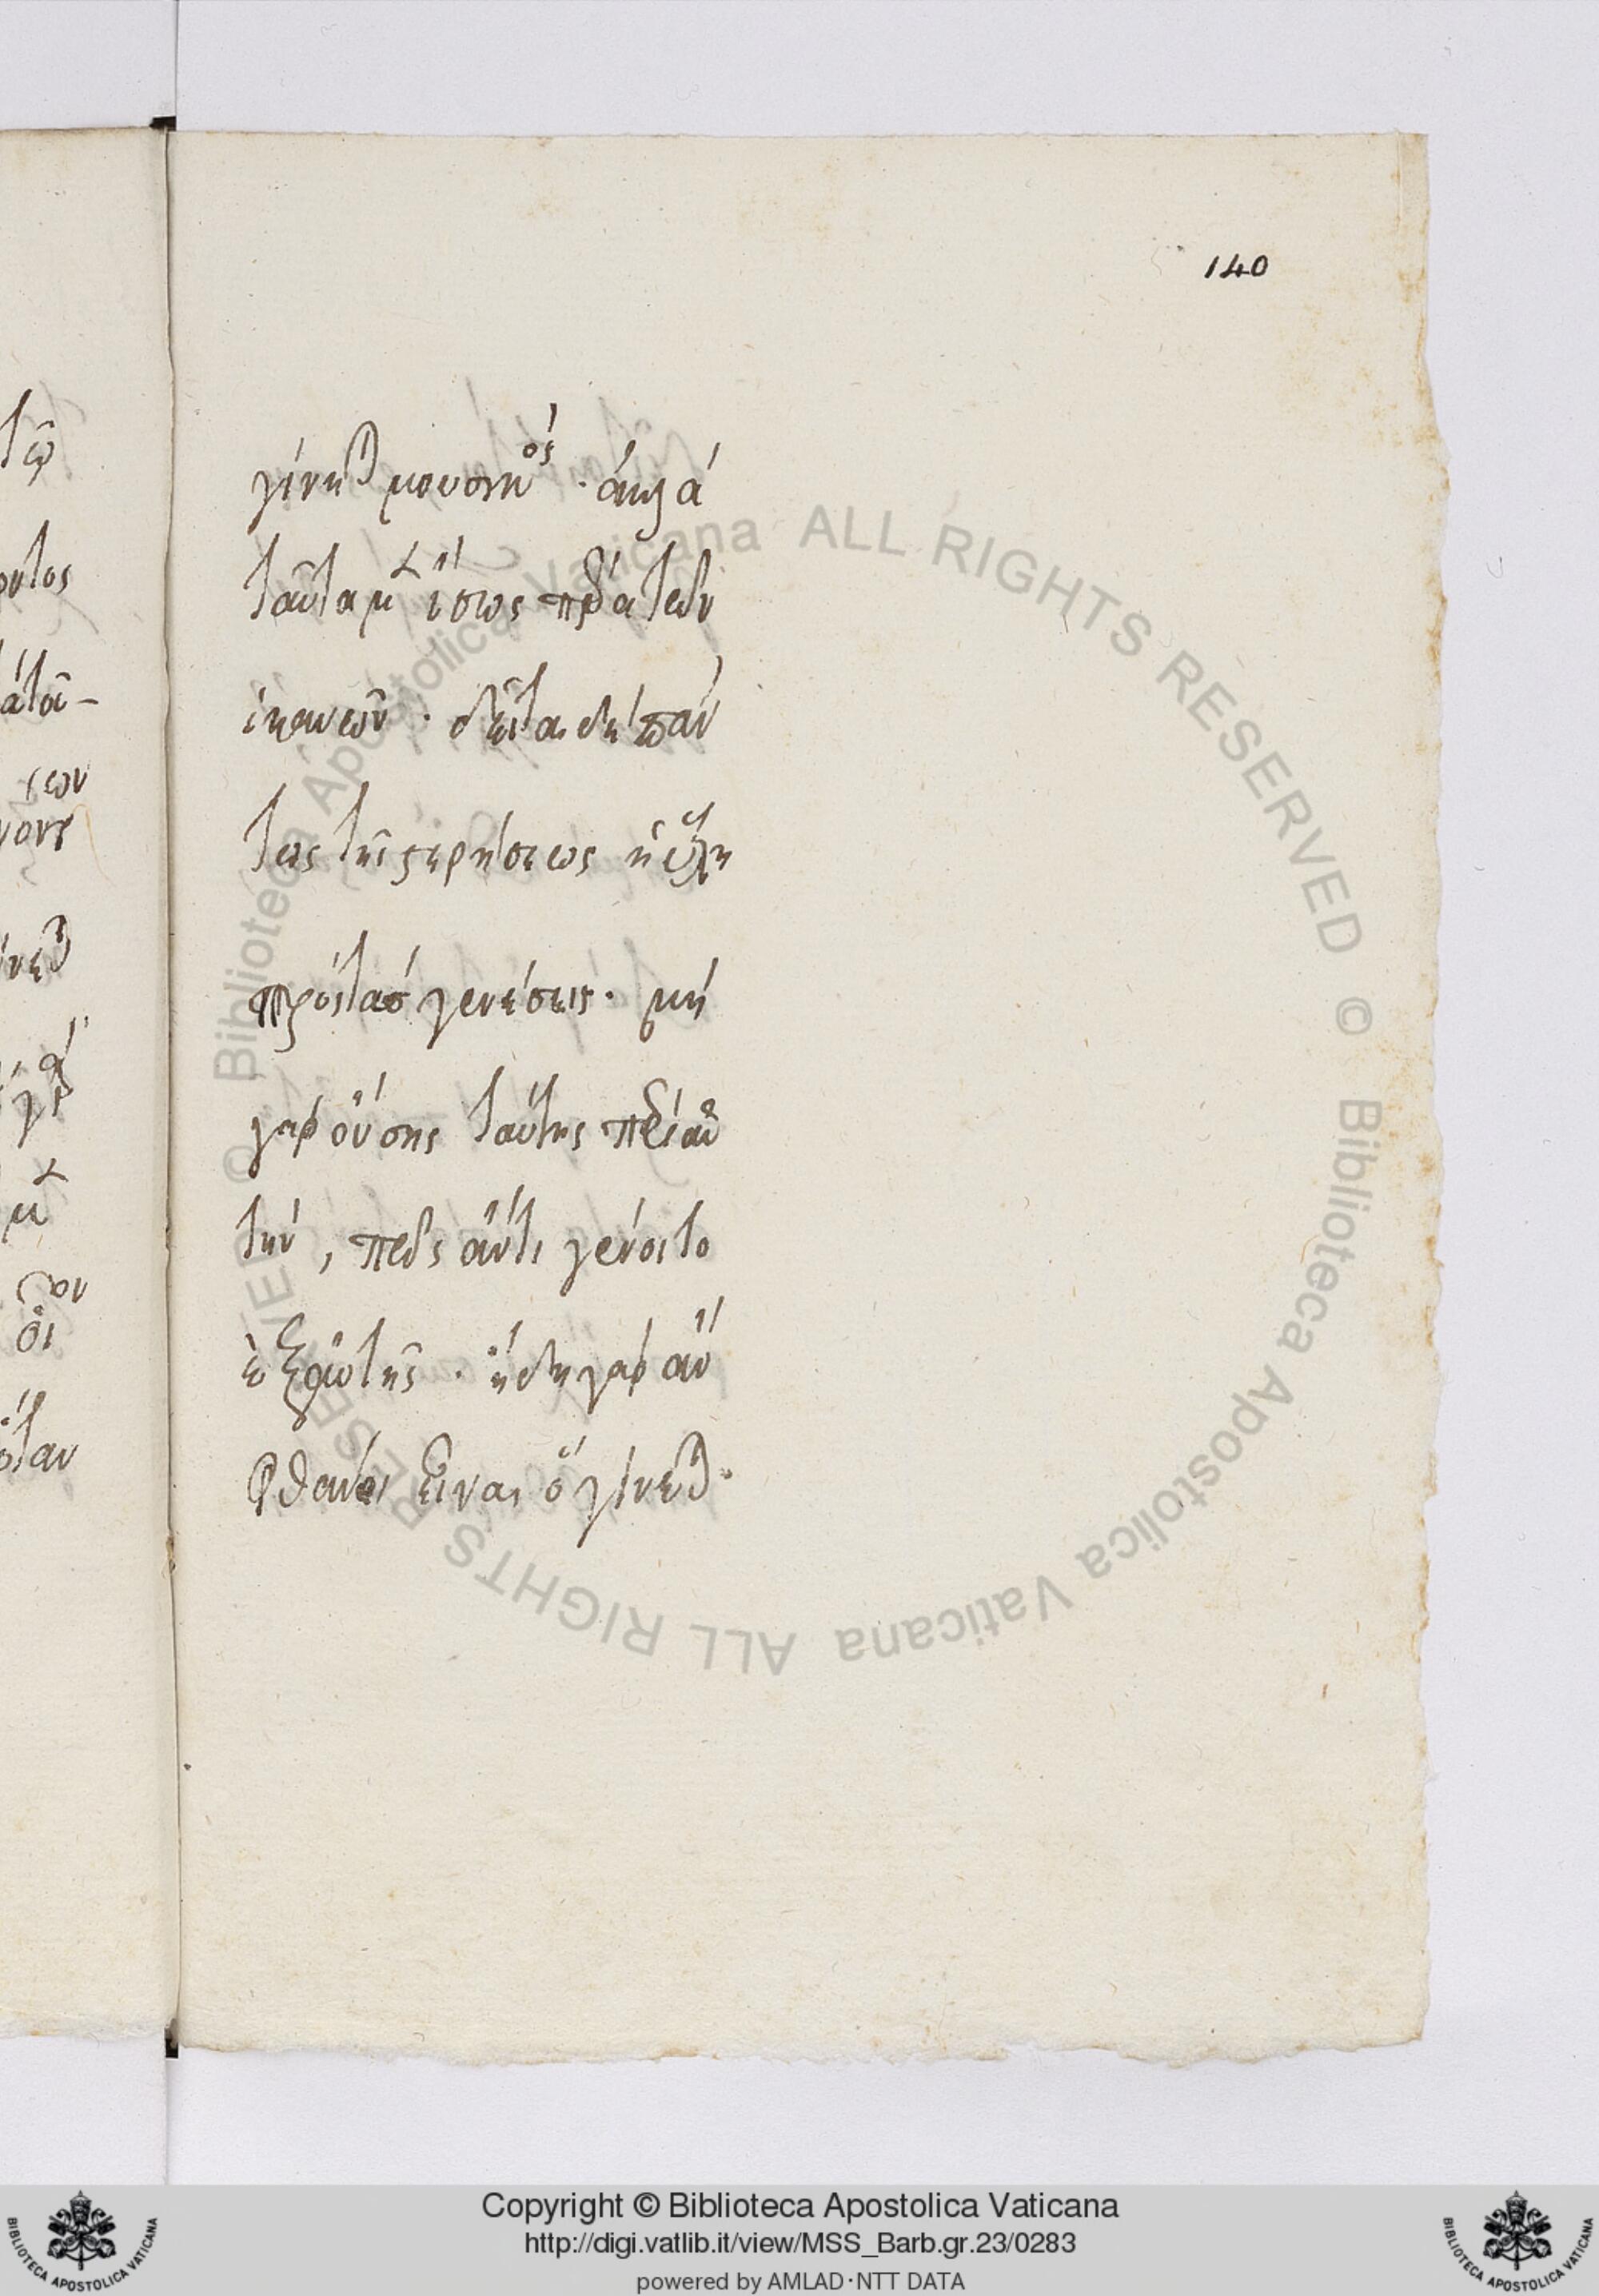 140
γίνεται μουσικός · ἀλλὰ
ταῦτα μὲν ἴσως περαιτέρω
ἱκανῶν · δεῖται δὴ πάν
τως τῆς στερήσεως ἡ ὕλη
πρὸς τὰς γενέσεις · μὴ
γὰρ οὔσης ταύτης περὶ αὐ
τήν, πῶς ἄν τι γένοιτο
ἐξ αὐτῆς · ἤδη γὰρ ἂν
φθάνοι εἶναι ὃ γίνεται ·
τῶ
οντος
Copyright © Biblioteca Apostolica Vaticana
http://digi.vatlib.it/view/MSS_Barb.gr.23/0283
powered by AMLAD·NTT DATA
BIBLIOTECA APOSTOLICA VATICANA
BIBLIOTECA APOSTOLICA VATICANA
© Biblioteca Apostolica Vaticana ALL RIGHTS RESERVED
© Biblioteca Apostolica Vaticana ALL RIGHTS RESERVED